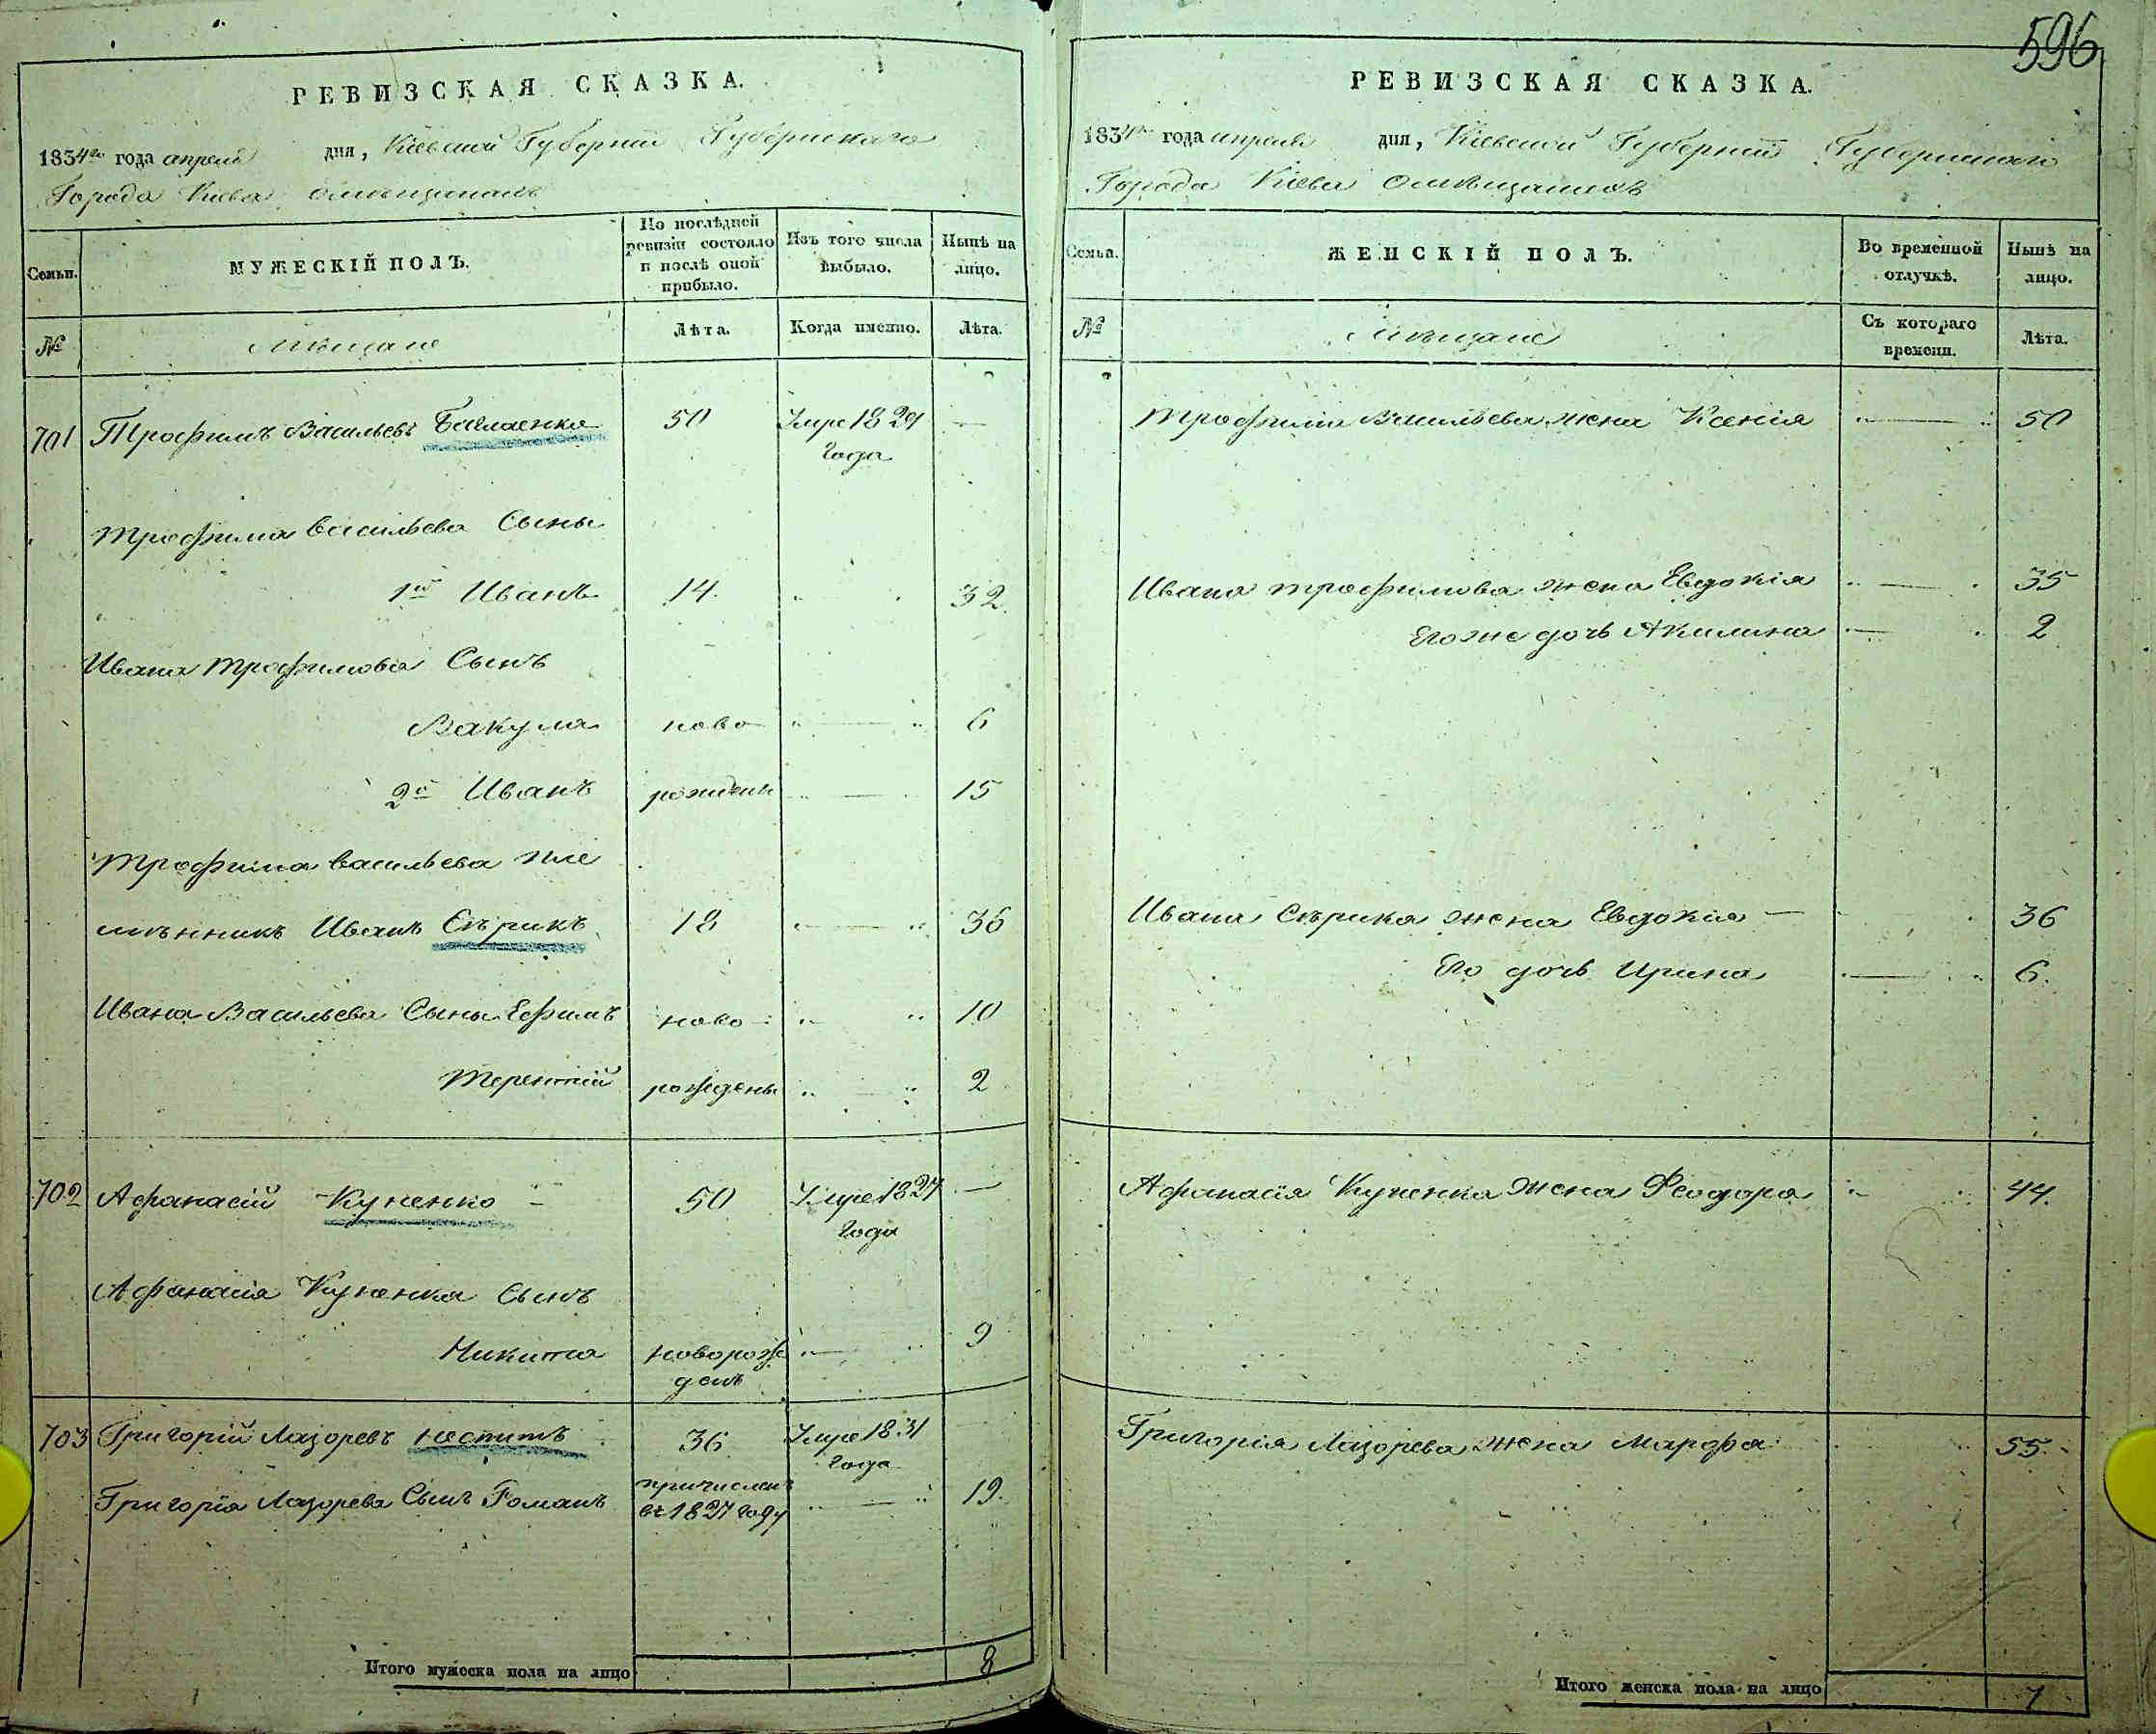 596
РЕВИЗСКАЯ СКАЗКА.
1834го года апреля дня, Кіевской Губерніи Губернскаго
Города Кіева о мѣщанахъ
Семьи.
МУЖЕСКІЙ ПОЛЪ.
По послѣдней ревизіи состояло и послѣ оной прибыло.
Изъ того числа выбыло.
Нынѣ на лицо.
№
Мѣщане
Лѣта.
Когда именно.
Лѣта.
701 Трофимъ Васильевъ 50 Умре 1829 —
года
Трофима Васильева Сыны
1й Иванъ 14. 32.
Ивана Трофимова Сынъ
Вакула ново 6
2й Иванъ рождены 15
Трофима Васильева пле
мѣнникъ Иванъ Сѣрикъ 18 36
Ивана Васильева Сыны Ефимъ ново 10
Терентій рождены 2
702 Афанасій Куненко 50 Умре 1827 —
года
Афанасія Куненка Сынъ
Никита новорож 9
денъ
703 Григорій Лазоревъ 36 Умре 1831
года
Григорія Лазорева Сынъ Романъ причисленъ 19.
въ 1827 году
Итого мужеска пола на лицо 8
РЕВИЗСКАЯ СКАЗКА.
1834го года апреля дня, Кіевской Губерніи Губернскаго
Города Кіева о мѣщанахъ
Семьи.
ЖЕНСКІЙ ПОЛЪ.
Во временной отлучкѣ.
Нынѣ на лицо.
№
Мѣщане
Съ котораго времени.
Лѣта.
Трофима Васильева жена Ксенія 50
Ивана Трофимова жена Евдокія 35
Его же дочь Акилина 2
Ивана Сѣрика жена Евдокія 36
Его дочь Ирина 6.
Афанасія Куненка жена Феодора 44.
Григорія Лазорева жена Марфа 55.
Итого женска пола на лицо 7